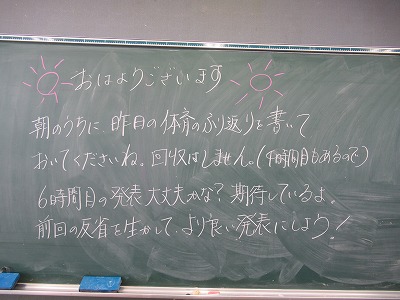 おはようございます
朝のうちに、昨日の体育のふり返りを書いて
おいてくださいね。回収はしません。(1時間目もあるので)
6時間目の発表大丈夫かな?期待しているよ。
前回の反省を生かして、より良い発表にしよう!